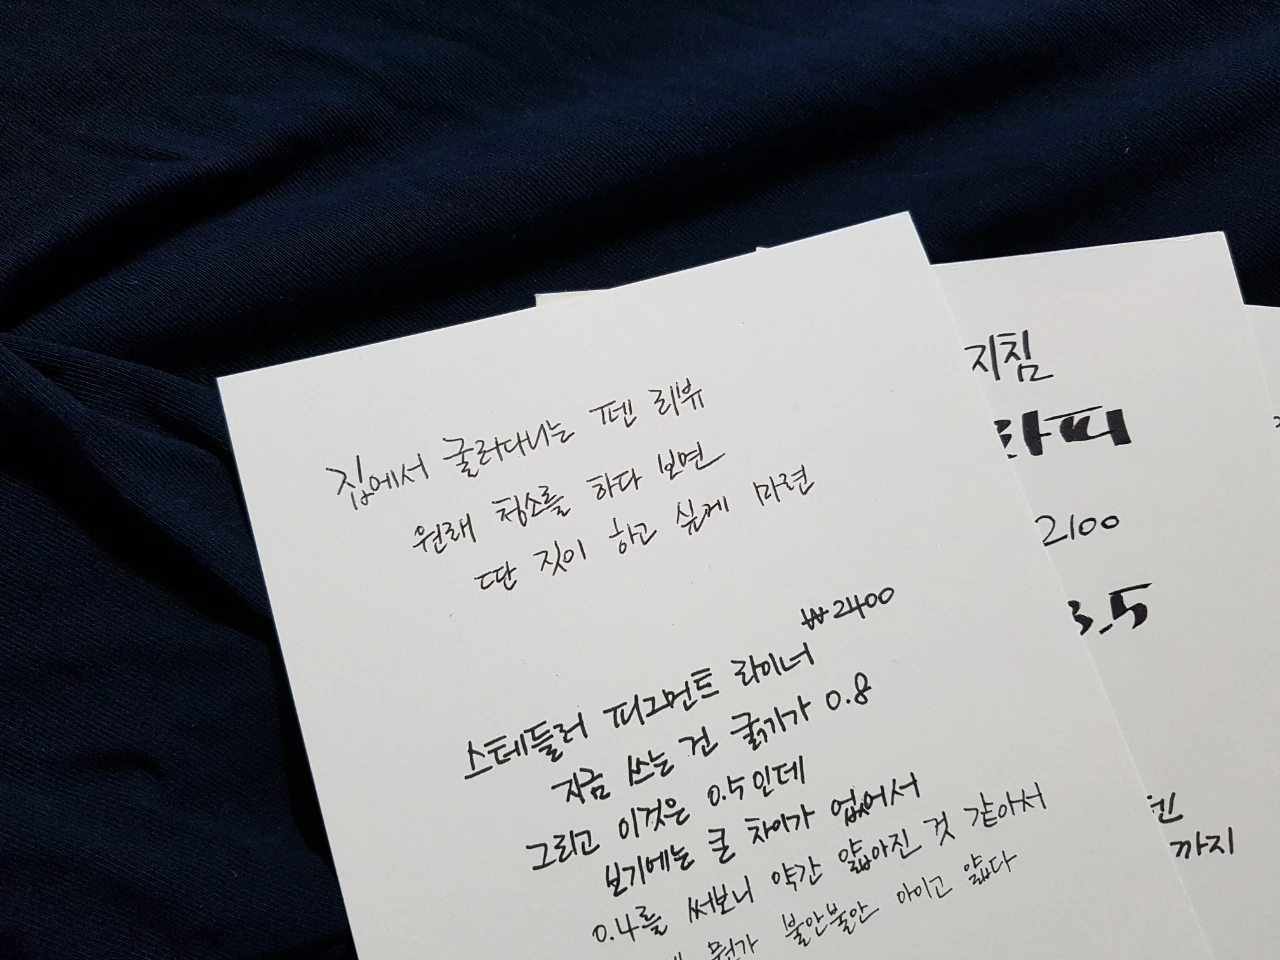 집에서 굴러다니는 펜 리뷰
원래 청소를 하다 보면
딴 짓이 하고 싶게 마련
₩2400
스테들러 피그먼트 라이너
지금 쓰는 건 굵기가 0.8
그리고 이것은 0.5인데
보기에는 큰 차이가 없어서
0.4를 써보니 약간 얇아진 것 같아서
뭔가 불안불안 아이고 얇다
지침
2100
3.5
까지